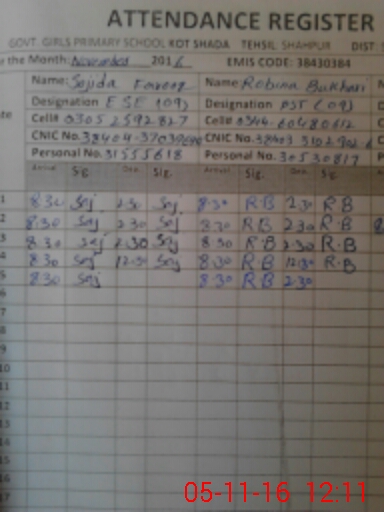 ATTENDANCE REGISTER
GOVT. GIRLS PRIMARY SCHOOL KOT SHADA TEHSIL SHAHPUR DIST
the Month: November 2016 EMIS CODE: 38430384
Name: Sajida Name Robina Bukhari
Designation ESE (09) Designation PST (09)
Cell# 0305 2592827 Cell# 0344-60480612
CNIC No. 38404-3703 CNIC No. 38403
Personal No. 31555618 Personal No. 30530817
Arrival Sig. Dep. Sig. Arrival Sig. Dep. Sig.
1 8:30 Saj 2:30 Saj 8:30 R B 2:30 R B
2 8:30 Saj 2:30 Saj 8:30 R B 2:30 R B
3 8:30 Saj 2:30 Saj 8:30 R B 2:30 R B
4 8:30 Saj 12:30 Saj 8:30 R B 12:30 R B
5 8:30 Saj 8:30 R B 2:30
6
7
8
9
10
11
12
13
14
15
16
17
05-11-16 12:11